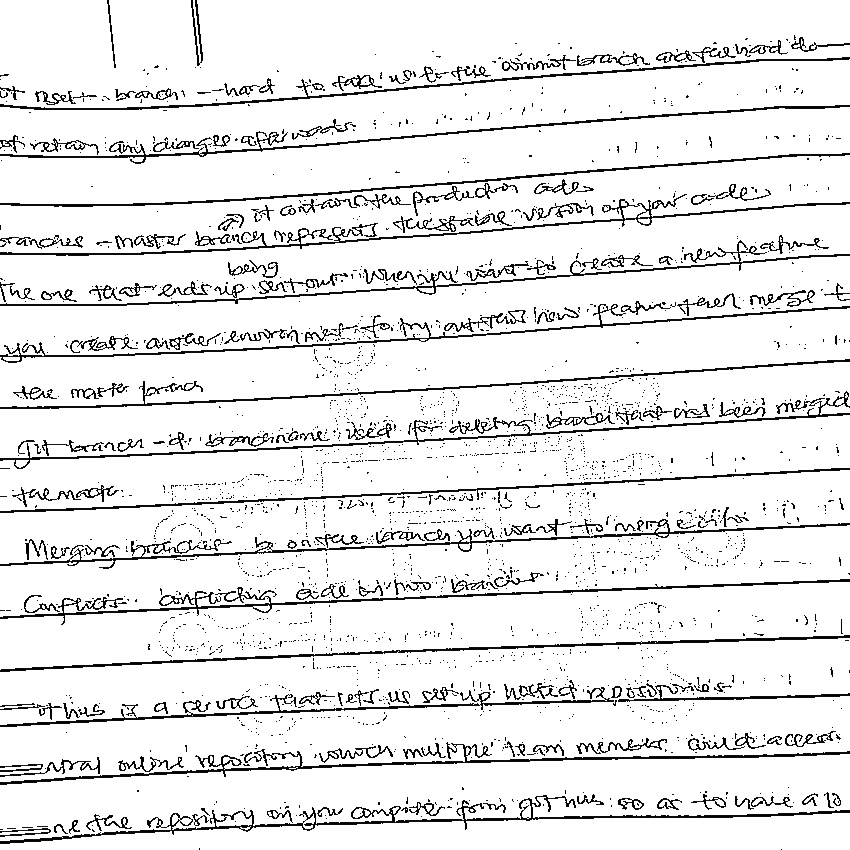 reset branch --hard to take us to the commit branch and the hard do
retain any changes afterwards
it contains the production code
branches - master branch represents the stable version of your code
being
The one that ends up sent out. When you want to create a new feature
you create another environment to try out this new feature then merge t
the master branch
git branch -d branchname used for deleting branches that has been merged
the master.
Merging branches be on the branch you want to merge
Conflicts. conflicting code b/w two branches
thub is a service that lets us set up hosted repositories
ntral online repository which multiple team member could access
ne the repository on your computer from github so as to have a lo